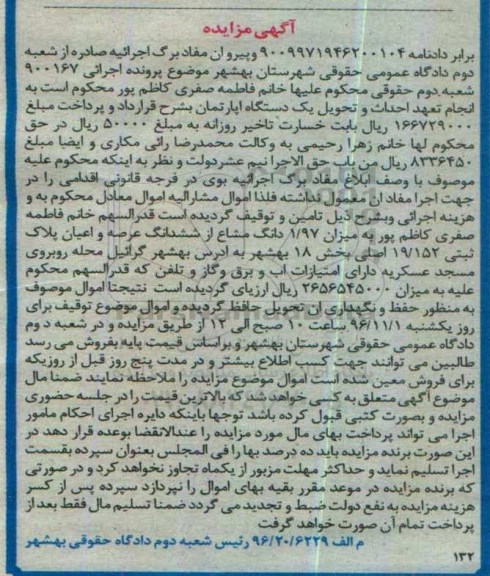 آگهی مزایده
برابر دادنامه ۹۰۰۹۹۷۱۹۴۶۲۰۰۱۰۴ وپیرو ان مفاد برگ اجرائیه صادره از شعبه
دوم دادگاه عمومی حقوقی شهرستان بهشهر موضوع پرونده اجرائی ۹۰۰۱۶۷
شعبه دوم حقوقی محکوم علیها خانم فاطمه صفری کاظم پور محکوم است به
انجام تعهد احداث و تحویل یک دستگاه اپارتمان بشرح قرارداد و پرداخت مبلغ
۱۶۶۷۲۹۰۰۰ ریال بابت خسارت تاخیر روزانه به مبلغ ۵۰۰۰۰۰ ریال در حق
محکوم لها خانم زهرا رحیمی به وکالت محمدرضا رائی مکاری و ایضا مبلغ
۸۳۳۶۴۵۰ ریال من باب حق الاجرا نیم عشردولت و نظر به اینکه محکوم علیه
موصوف با وصف ابلاغ مفاد برگ اجرائیه بوی در فرجه قانونی اقدامی را در
جهت اجرا مفاد ان معمول نداشته فلذا اموال مشارالیه اموال معادل محکوم به و
هزینه اجرائی وبشرح ذیل تامین و توقیف گردیده است قدرالسهم خانم فاطمه
صفری کاظم پور به میزان ۱/۹۷ دانگ مشاع از ششدانگ عرصه و اعیان پلاک
ثبتی ۱۹/۱۵۲ اصلی بخش ۱۸ بهشهر به ادرس بهشهر گرائیل محله روبروی
مسجد عسکریه دارای امتیازات اب و برق وگاز و تلفن که قدرالسهم محکوم
علیه به میزان ۲۶۵۶۵۴۵۰۰۰ ریال ارزیابی گردیده است نتیجتا اموال موصوف
به منظور حفظ و نگهداری ان تحویل حافظ گردیده و اموال موضوع توقیف برای
روز یکشنبه ۹۶/۱۱/۱ ساعت ۱۰ صبح الی ۱۲ از طریق مزایده و در شعبه دوم
دادگاه عمومی حقوقی شهرستان بهشهر و براساس قیمت پایه بفروش می رسد
طالبین می توانند جهت کسب اطلاع بیشتر و در مدت پنج روز قبل از روزیکه
برای فروش معین شده است اموال موضوع مزایده را ملاحظه نمایند ضمنا مال
موضوع آگهی متعلق به کسی خواهد شد که بالاترین قیمت را در جلسه حضوری
مزایده و بصورت کتبی قبول کرده باشد توجها باینکه دایره اجرای احکام مامور
اجرا می تواند پرداخت بهای مال مورد مزایده را عندالانقضا بوعده قرار دهد در
این صورت برنده مزایده باید ده درصد بها را فی المجلس بعنوان سپرده بقسمت
اجرا تسلیم نماید و حداکثر مهلت مزبور از یکماه تجاوز نخواهد کرد و در صورتی
که برنده مزایده در موعد مقرر بقیه بهای اموال را نپردازد سپرده پس از کسر
هزینه مزایده به نفع دولت ضبط و تجدید می گردد ضمنا تسلیم مال فقط بعد از
پرداخت تمام آن صورت خواهد گرفت
م الف ۹۶/۲۰/۶۲۲۹ رئیس شعبه دوم دادگاه حقوقی بهشهر
۱۳۲